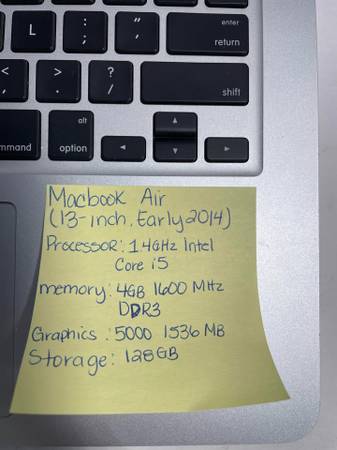 enter
L : ; " ' return
< , > . ? / shift
alt
mmand option
Macbook Air
(13-inch, Early 2014)
Processor: 1.4GHz Intel
Core i5
memory: 4GB 1600 MHz
DDR3
Graphics: 5000 1536 MB
Storage: 128GB